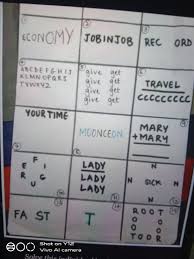 econOMY
JOBINJOB
REC ORD
ABCDEFGHIJ
KLMNOPQRS
TVWXYZ
give get
give get
give get
give get
TRAVEL
CCCCCCC
YOUR TIME
MOONCEON
MARY
+MARY
E F I
R G
U
LADY
LADY
LADY
N
N SICK N
N
FA ST
T
ROOT
O O
O O
TOOR
Shot on Y12
Vivo AI camera